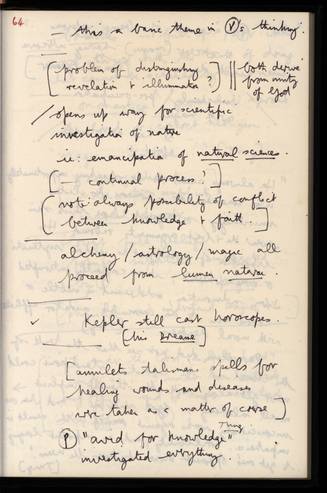 64
— this a basic theme in (P)'s thinking.
[problem of distinguishing || both derive
revelation & illumination?] from unity
of God
/ opens up way for scientific
investigation of nature
ie: emancipation of natural sciences.
[— continual process?]
[note: always possibility of conflict
between knowledge & faith.]
alchemy / astrology / magic all
proceed from lumen naturae.
✓ Kepler still cast horoscopes.
[his Dream]
[amulets talismans spells for
healing wounds and diseases
were taken as a matter of course]
(P) "avid for knowledge"
Jung
investigated everything.